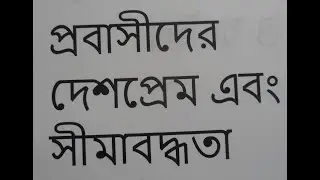 প্রবাসীদের
দেশপ্রেম এবং
সীমাবদ্ধতা